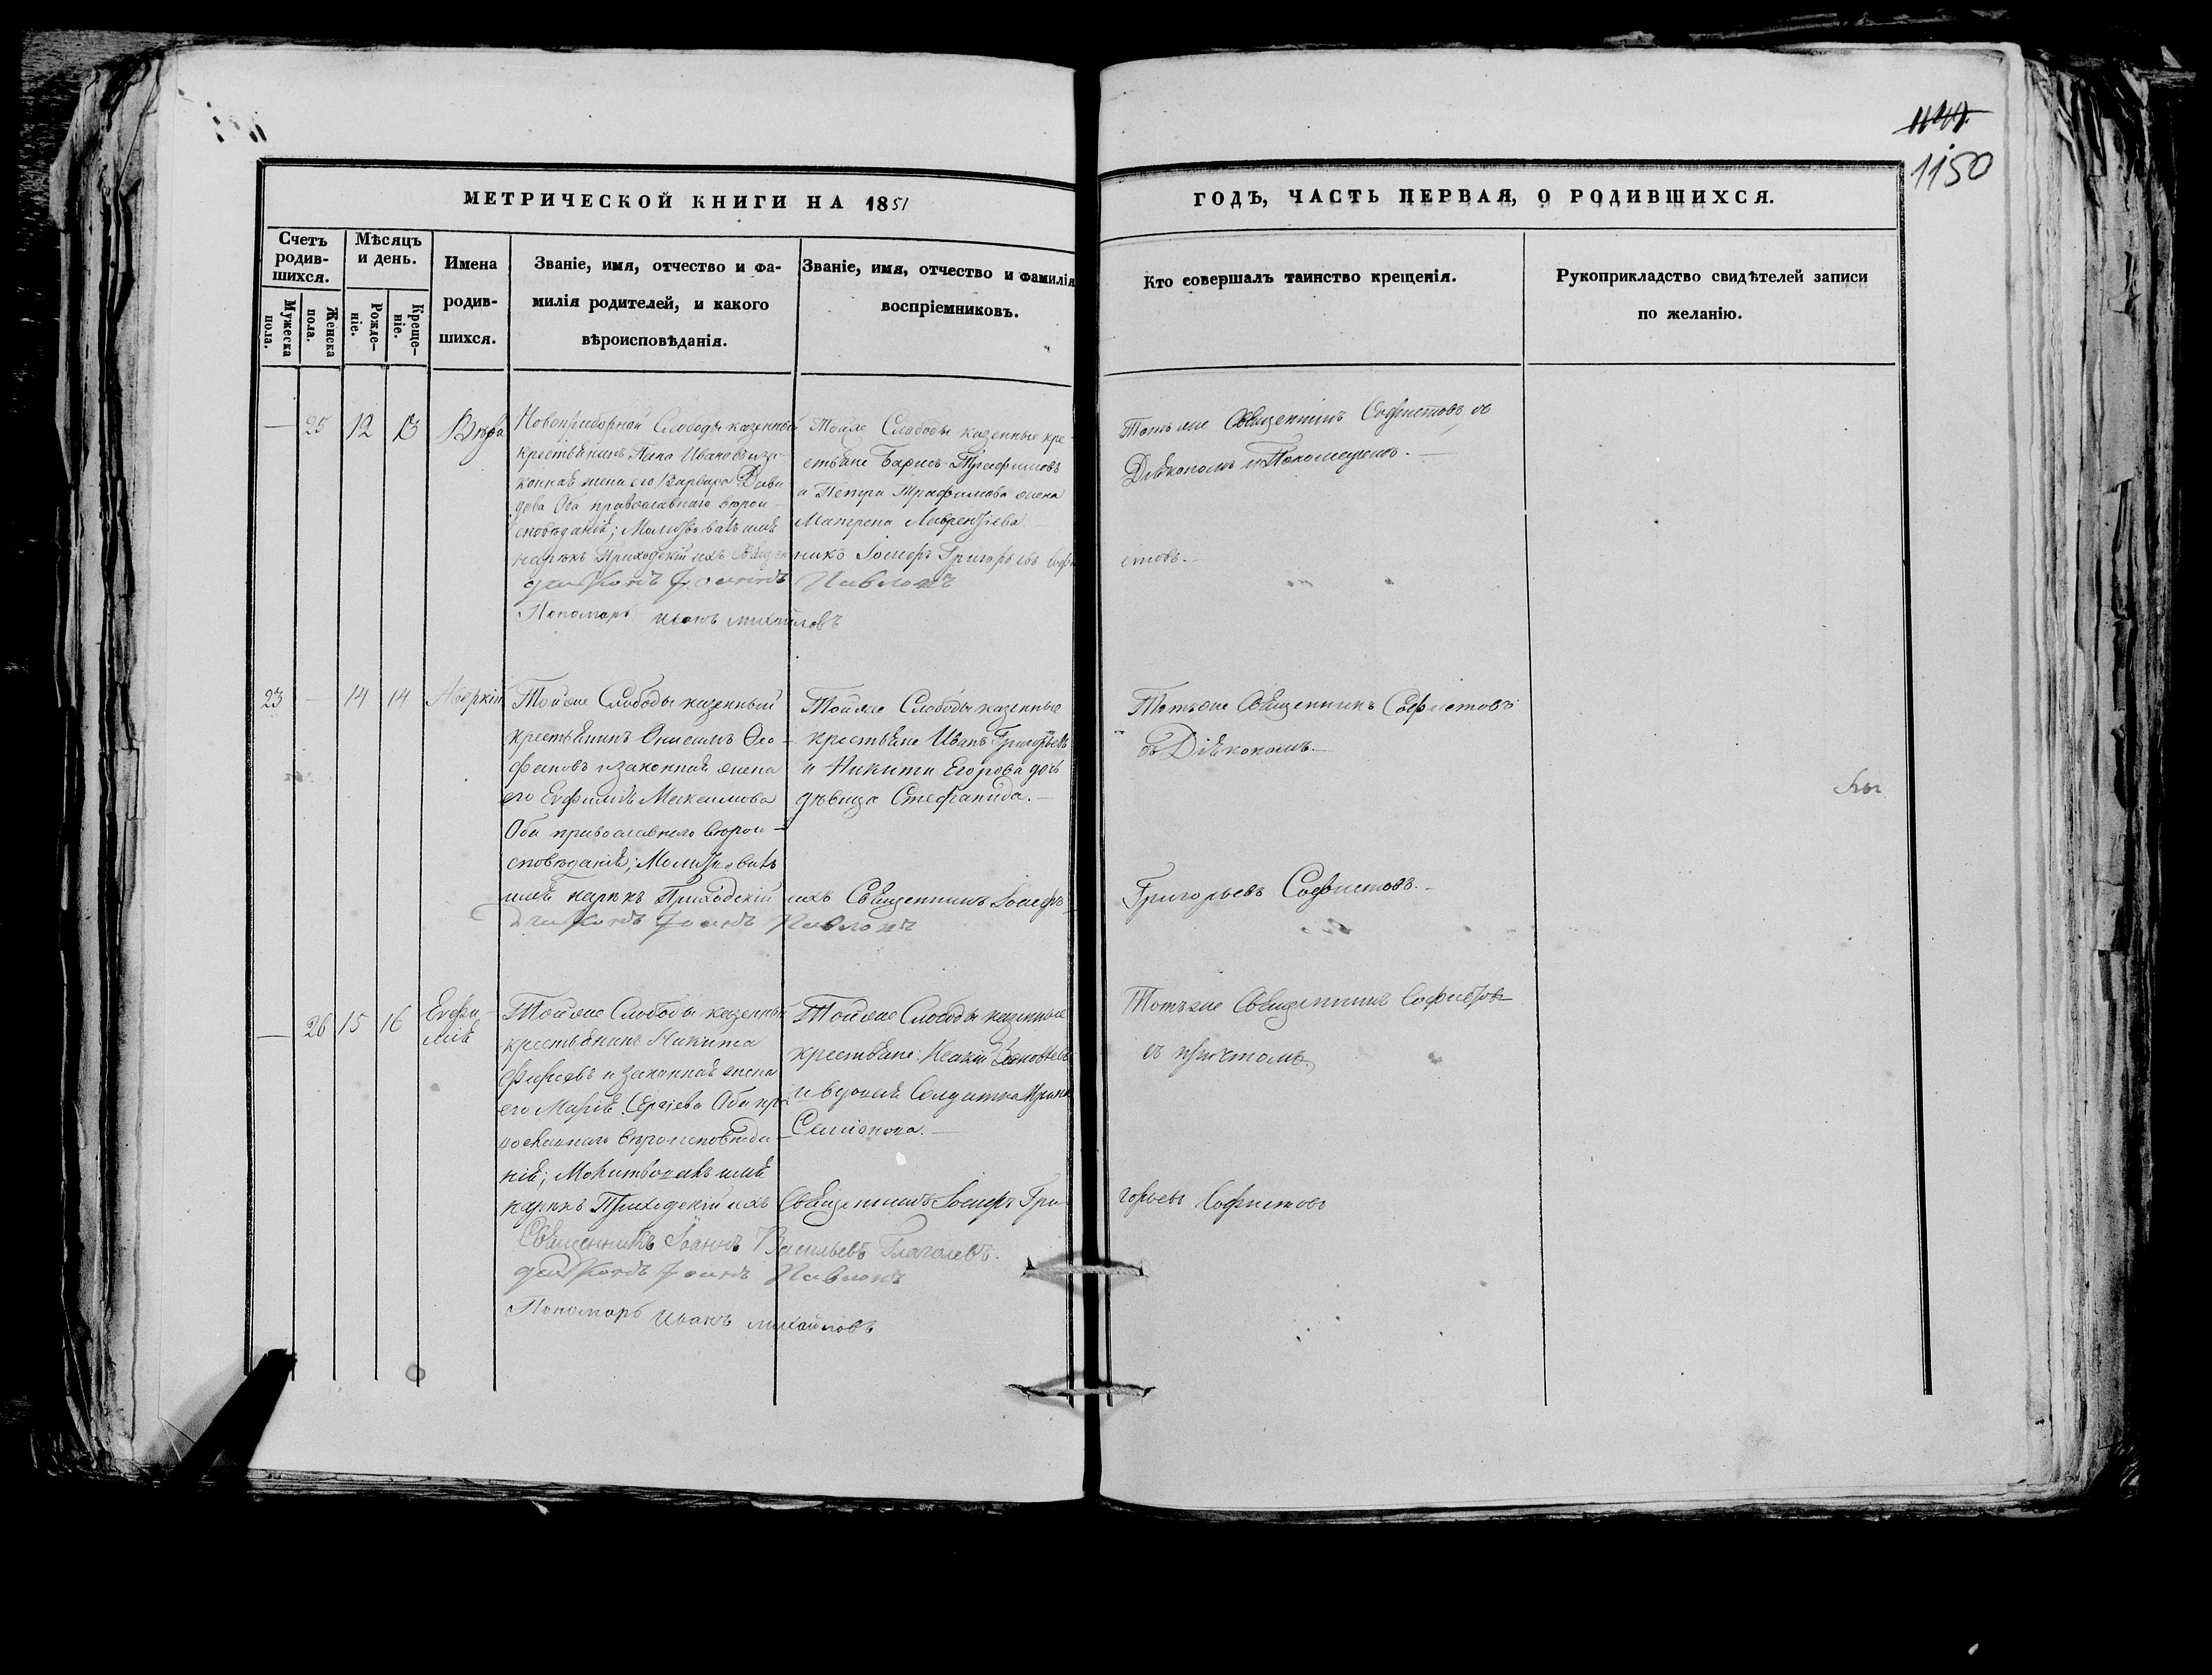 1150
МЕТРИЧЕСКОЙ КНИГИ НА 1851
ГОДЪ, ЧАСТЬ ПЕРВАЯ, О РОДИВШИХСЯ.
Счетъ родив-шихся.
Мужеска пола.
Женска пола.
Мѣсяцъ и день.
Рожде-ніе.
Креще-ніе.
Имена
родив-
шихся.
Званіе, имя, отчество и фа-
милія родителей, и какого
вѣроисповѣданія.
Званіе, имя, отчество и фамилія
воспріемниковъ.
Кто совершалъ таинство крещенія.
Рукоприкладство свидѣтелей записи
по желанію.
— 25 12 13 Вѣра
Новоприборной Слободы казенный
крестьянинъ Ивановъ и за-
конная жена его Варвара Дави
дова Оба православнаго вѣрои-
сповѣданія; Молитвовалъ имя
нарѣкъ Приходскій ихъ Священникъ Іосифъ Григорьевъ Софи
стовъ.
Діаконъ Іоаннъ Павловъ
Пономарь Иванъ Михайловъ
Тойже Слободы казенные кре-
стьяне Борисъ Трафимовъ
а Петра Трафимова жена
Матрена Лаврентіева
Тотъ же Священникъ Софистовъ съ
Діякономъ и Пономаремъ.—
23 — 14 14 Аверкій
Тойже Слободы казенный
крестьянинъ Онисимъ Ѳео-
фановъ и законная жена
его Евфимія Максимова
Оба православнаго вѣрои-
сповѣданія; Молитвовалъ
имя нарѣкъ Приходскій ихъ Священникъ Іосифъ
Григорьевъ Софистовъ.—
Діаконъ Іоаннъ Павловъ
Тойже Слободы казенные
крестьяне Иванъ Григорьевъ
и Никиты Егорова дочь
дѣвица Стефанида.—
Тотъ же Священникъ Софистовъ
съ Діякономъ.—
— 26 15 16 Евфи-
мія
Тойже Слободы казенный
крестьянинъ Никита
Фирсовъ и законная жена
его Марія Сергіева Оба пра
вославнаго вѣроисповѣда-
нія; Молитвовалъ имя
нарѣкъ Приходскій ихъ Священникъ Іосифъ Гри-
горьевъ Софистовъ
Священникъ Іоаннъ Васильевъ Глаголевъ.
Діаконъ Іоаннъ Павловъ
Пономарь Иванъ Михайловъ
Тойже Слободы казенные
крестьяне:
и вдовая Солдатка Ирина
Семіонова.—
Тотъ же Священникъ Софистовъ
съ причтомъ.